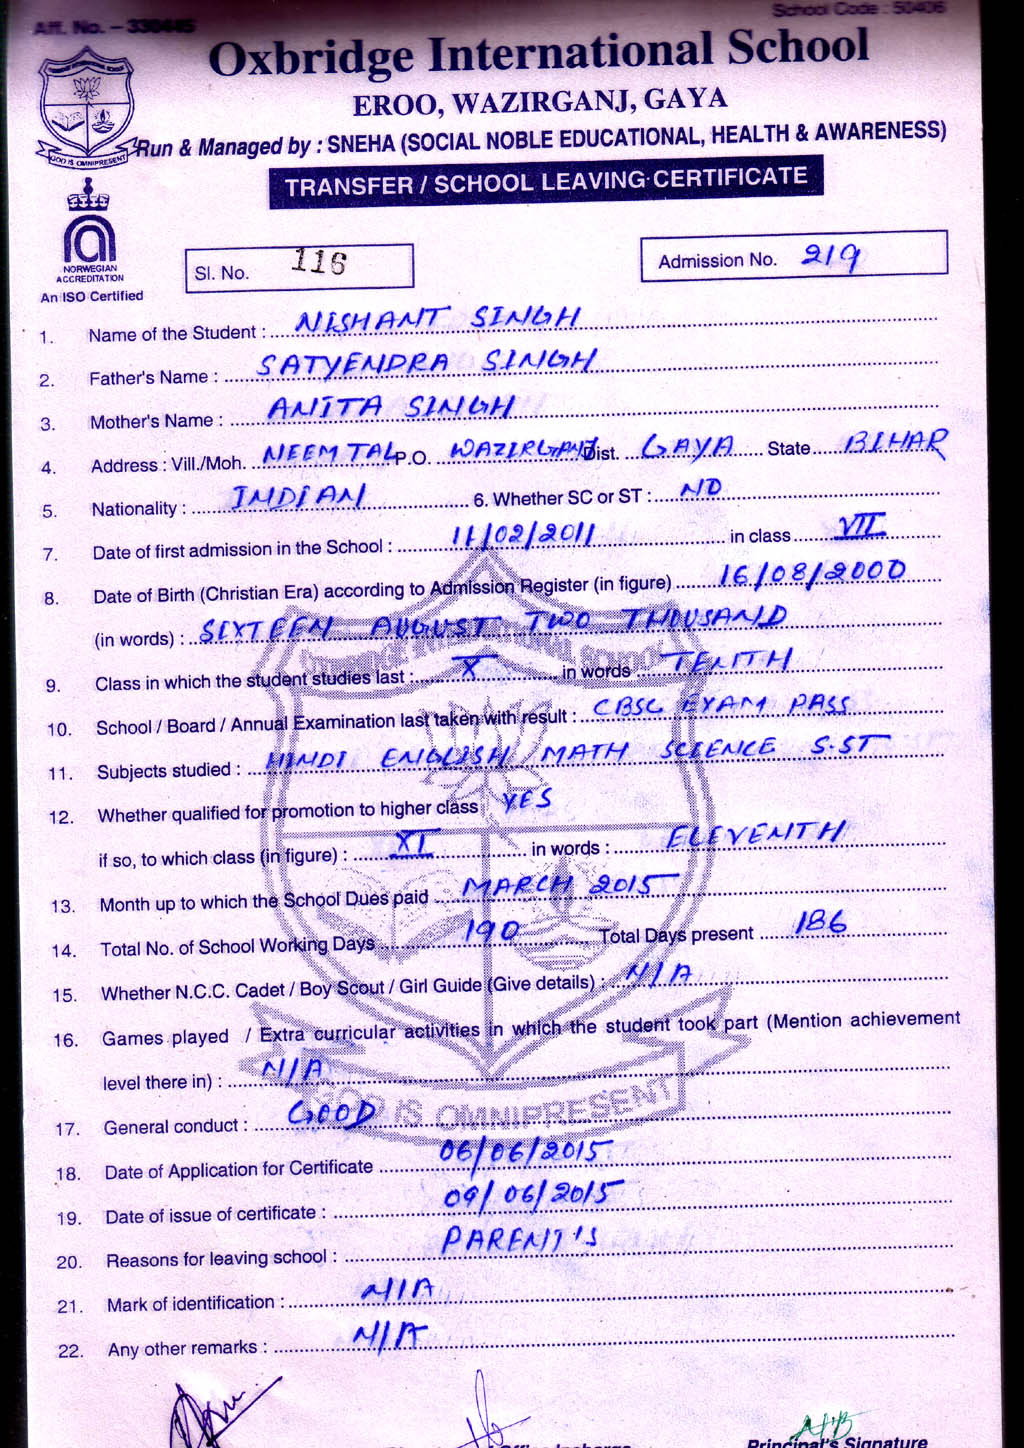 Aff. No. – 330445 School Code : 50406
Oxbridge International School
EROO, WAZIRGANJ, GAYA
Run & Managed by : SNEHA (SOCIAL NOBLE EDUCATIONAL, HEALTH & AWARENESS)
TRANSFER / SCHOOL LEAVING CERTIFICATE
GOD IS OMNIPRESENT
NORWEGIAN
ACCREDITATION
An ISO Certified
Sl. No. 116 Admission No. 219
1. Name of the Student : NISHANT SINGH
2. Father's Name : SATYENDRA SINGH
3. Mother's Name : ANITA SINGH
4. Address : Vill./Moh. NEEM TAL P.O. WAZIRGANJ Dist. GAYA State BIHAR
5. Nationality : INDIAN 6. Whether SC or ST : NO
7. Date of first admission in the School : 11/02/2011 in class VII
8. Date of Birth (Christian Era) according to Admission Register (in figure) 16/08/2000
(in words) : SIXTEEN AUGUST TWO THOUSAND
9. Class in which the student studies last : X in words TENTH
10. School / Board / Annual Examination last taken with result : CBSE EXAM PASS
11. Subjects studied : HINDI ENGLISH MATH SCIENCE S.ST
12. Whether qualified for promotion to higher class YES
if so, to which class (in figure) : XI in words : ELEVENTH
13. Month up to which the School Dues paid MARCH 2015
14. Total No. of School Working Days 190 Total Days present 186
15. Whether N.C.C. Cadet / Boy Scout / Girl Guide (Give details) : N/A
16. Games played / Extra curricular activities in which the student took part (Mention achievement
level there in) : N/A
GOD IS OMNIPRESENT
17. General conduct : GOOD
18. Date of Application for Certificate 06/06/2015
19. Date of issue of certificate : 09/06/2015
20. Reasons for leaving school : PARENT'S
21. Mark of identification : N/A
22. Any other remarks : N/A
Office Incharge Principal's Signature